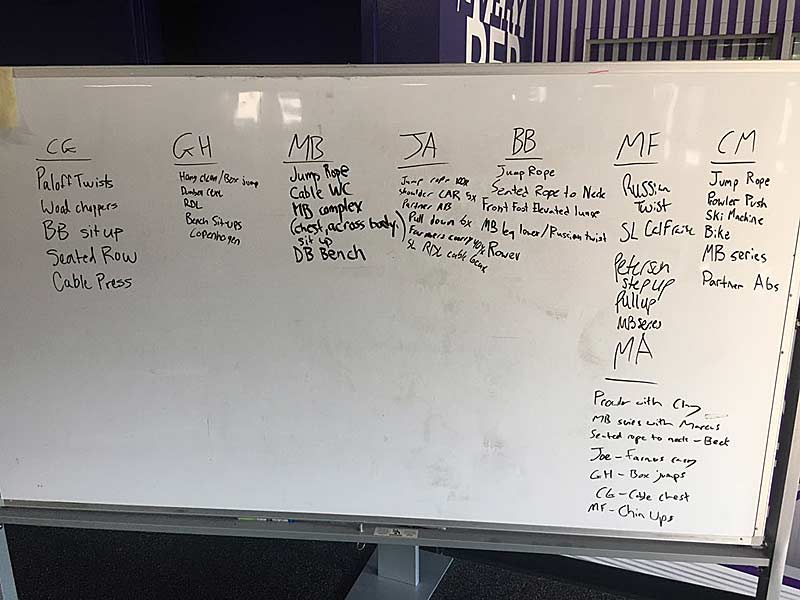 CG
Paloff Twists
Wood choppers
BB sit up
Seated Row
Cable Press
GH
Hang clean/Box jump
RDL
Bench Sit-ups
Copenhagen
MB
Jump Rope
Cable WC
MB complex
(chest, across body,
sit up)
DB Bench
JA
Jump rope 100x
shoulder CAR 5x
Partner AB
Pull down 6x
Farmers carry 40x
SL RDL cable
BB
Jump Rope
Seated Rope to Neck
Front Foot Elevated lunge
MB leg lower/Russian twist
Rower
MF
Russian
Twist
SL Calf raise
Petersen
step up
Pull up
MB series
CM
Jump Rope
Prowler Push
Ski Machine
Bike
MB series
Partner Abs
MA
Prowler with Clay
MB series with Marcus
Seated rope to neck - Beck
Joe - Farmers carry
GH - Box jumps
CG - Cable chest
MF - Chin Ups